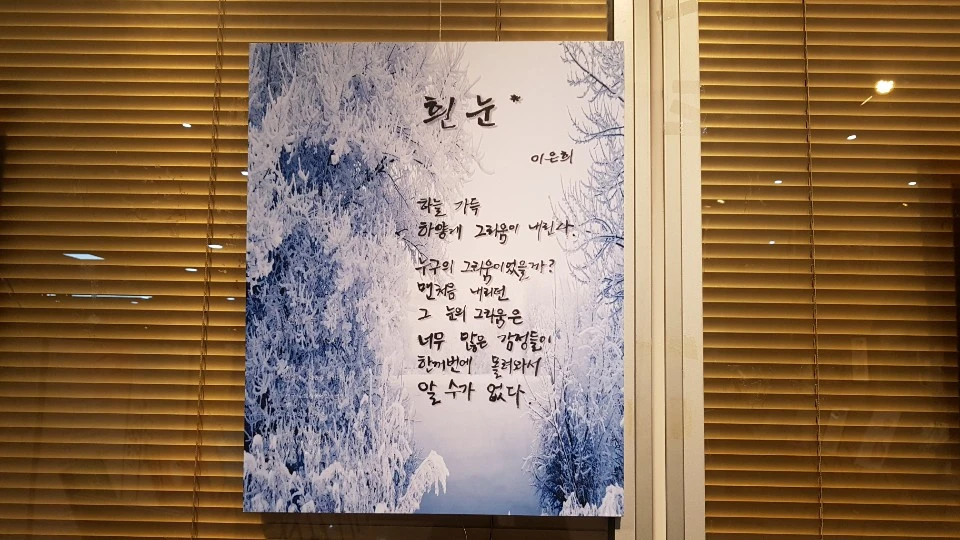 흰 눈 *
이은희
하늘 가득
하얗게 그리움이 내린다.
누구의 그리움이었을까?
맨처음 내리던
그 눈의 그리움은
너무 많은 감정들이
한꺼번에 몰려와서
알 수가 없다.